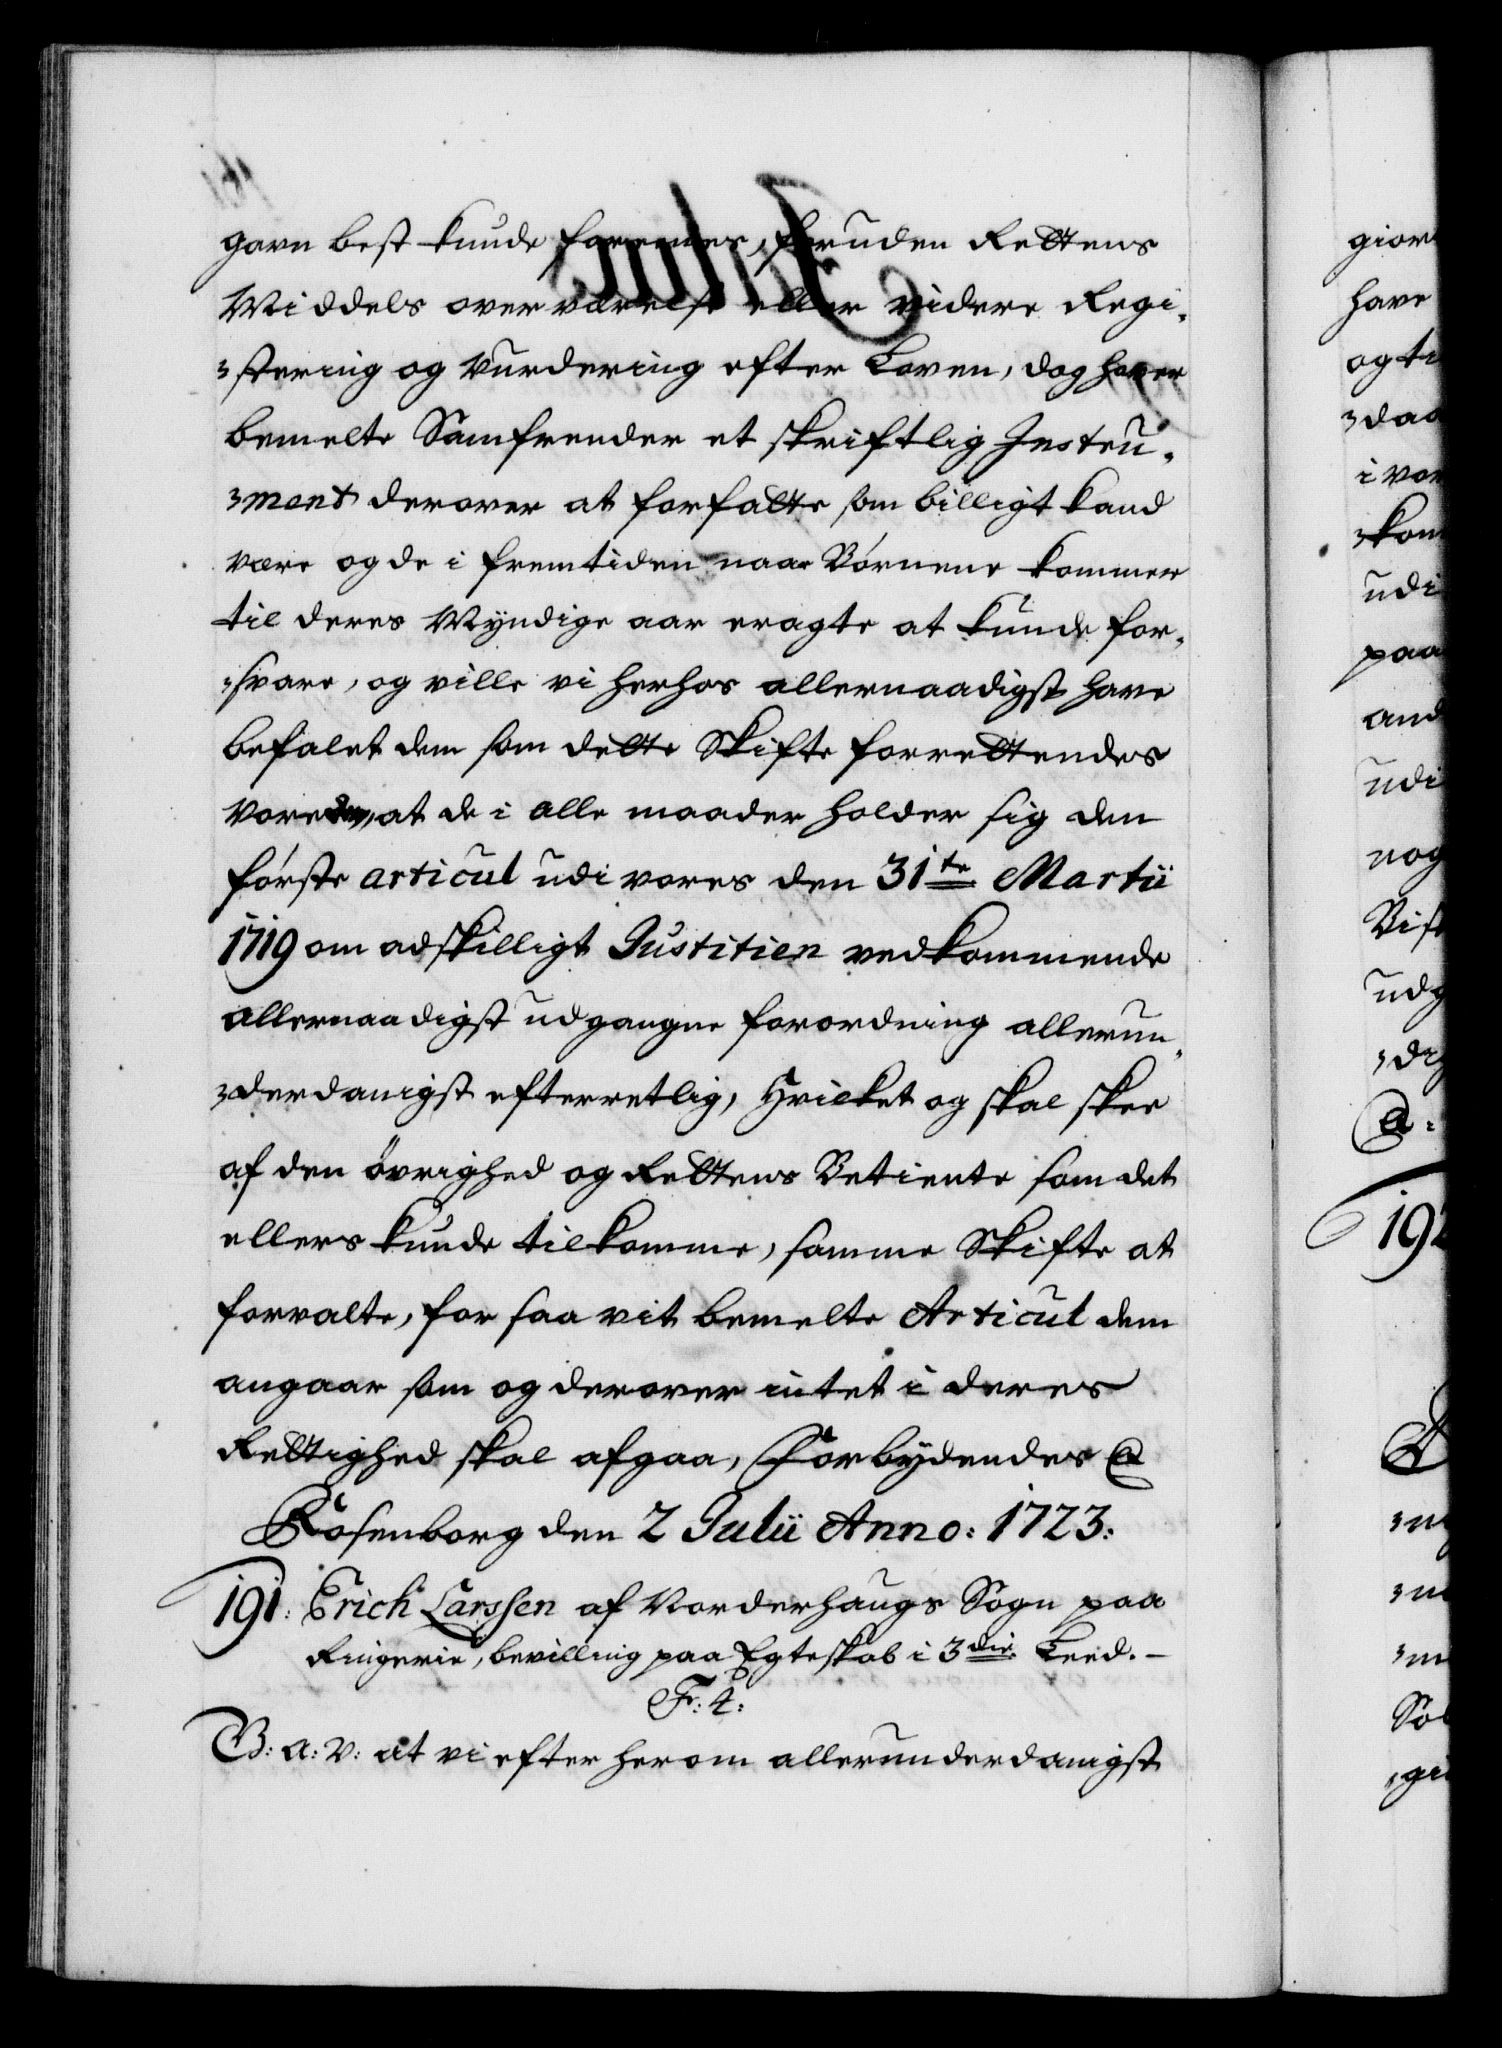 gavn best kunde forenes, foruden Rettens
Middels overværelse eller videre Regi-
-stering og Vurdering efter Loven, dog haver
bemelte Samfrender et skriftlig Instru-
-ment derover at forfatte som billigt kand
være og de i fremtiden naar Børnene kommer
til deres Myndige aar eragte at kunde for-
-svare, og ville vi herhos allernaadigst have
befalet dem som dette Skifte forrettendes
vorder, at de i alle maader holder sig den
første articul udi vores den 31te Martii
1719 om adskilligt Justitien vedkommende
allernaadigst udgangne forordning allerun-
-derdanigst efterretlig, Hvilket og skal skee
af den øvrighed og Rettens Betiente som det
ellers kunde tilkomme, samme Skifte at
forvalte, for saa vit bemelte Articul dem
angaar som og derover intet i deres
Rettighed skal afgaa, Forbydendes &
Rosenborg den 2 Julii Anno: 1723:
191: Erich Larssen af Norderhaugs Sogn paa
Ringerie, bevilling paa Egteskab i 3die Leed.-
Fr: 4:
B: a: v: at vi efter herom allerunderdanigst
gior
have
og ti
-daa
i vor
-kom
udi
paa
and
udi
nog
Bis
udg
-di
&:
192
-m
Sø
-gi